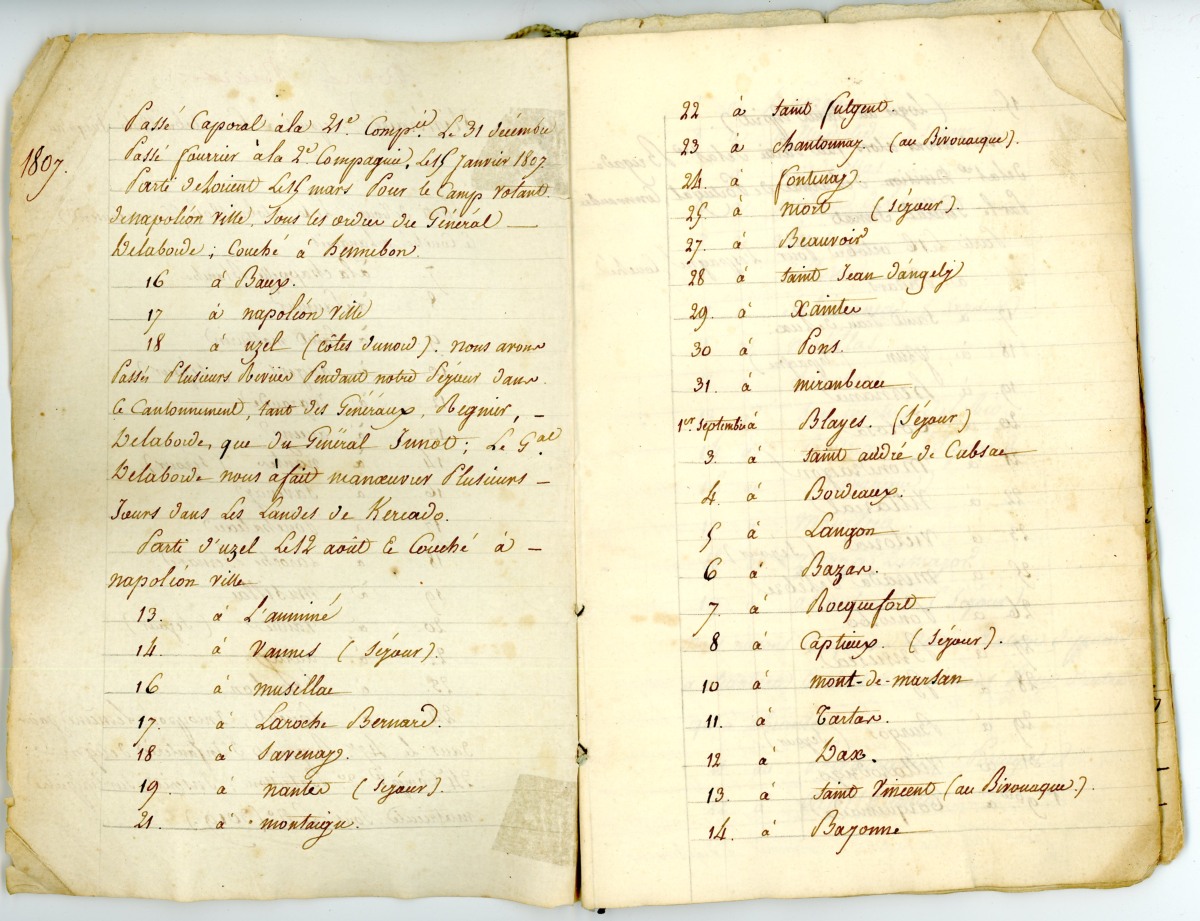 Passé Caporal à la 21e. Compie. Le 31 décembre
1807.
Passé fourrier à la 2e Compagnie, Le 15 Janvier 1807
Parti de Lorient Le 15 mars Pour le Camp volant
de napoléon ville, Sous les ordres du Général —
Delaborde ; Couché à hennebon.
16 à Baux.
17 à napoléon ville
18 à uzel (côtes dunord). nous avons
Passés Plusieurs Revües Pendant notre Séjour dans
le Cantonnement, tant des Généraux, Regnier, —
Delaborde, que du Général Junot ; Le Gal
Delaborde nous à fait manœuvrer Plusieurs —
Jours dans Les Landes de Kercado.
Parti d'uzel Le 12 août & Couché à —
napoléon ville
13. à L'auminé
14 à Vannes (Séjour).
16 à musillac
17. à Laroche Bernard.
18 à Savenay.
19. à nantes (Séjour).
21. à montaigu.
22 à Saint fulgent.
23 à chantonnay. (au Birouacque).
24. à fontenay.
25 à niort (Séjour).
27. à Beauvoir
28 à Saint Jean d'angelÿ
29. à Xaintes
30 à Pons.
31. à mirambeau
1er Septembre à Blayes. (Séjour)
3. à Saint andré de Cubsac
4. à Bordeaux.
5 à Langon
6 à Bazas.
7. à Rocquefort.
8 à Captieux. (Séjour).
10 à mont-de-marsan
11. à Tartas.
12 à Dax.
13. à Saint Vincent (au Birouaque.).
14. à Bayonne